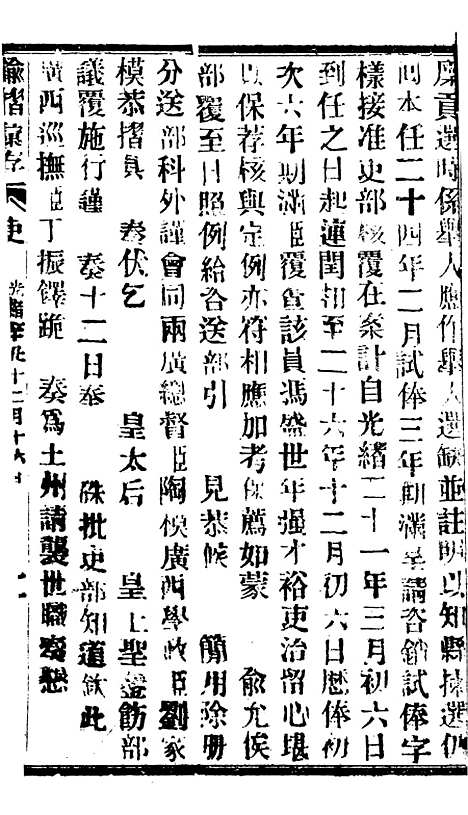 廩貢選時係舉人應作舉人選缺並註明以知縣揀選仍
回本任二十四年二月試俸三年期滿呈請咨銷試俸字
樣接准吏部核覆在案計自光緒二十一年三月初六日
到任之日起連閏扣至二十六年十二月初六日歷俸初
次六年期滿臣覆查該員馮盛世年强才裕吏治留心堪
以保荐核與定例亦符相應加考保薦如蒙　俞允俟
部覆至日照例給咨送部引　見恭候　簡用除册
分送部科外謹會同兩廣總督臣陶模廣西學政臣劉家
模恭摺具　奏伏乞　皇太后　皇上聖鑒飭部
議覆施行謹　奏十二日奉　硃批吏部知道欽此
廣西巡撫臣丁振鐸跪　奏爲土州請襲世職奏懇
諭摺彙存　吏　光緒　年　十二月十六日